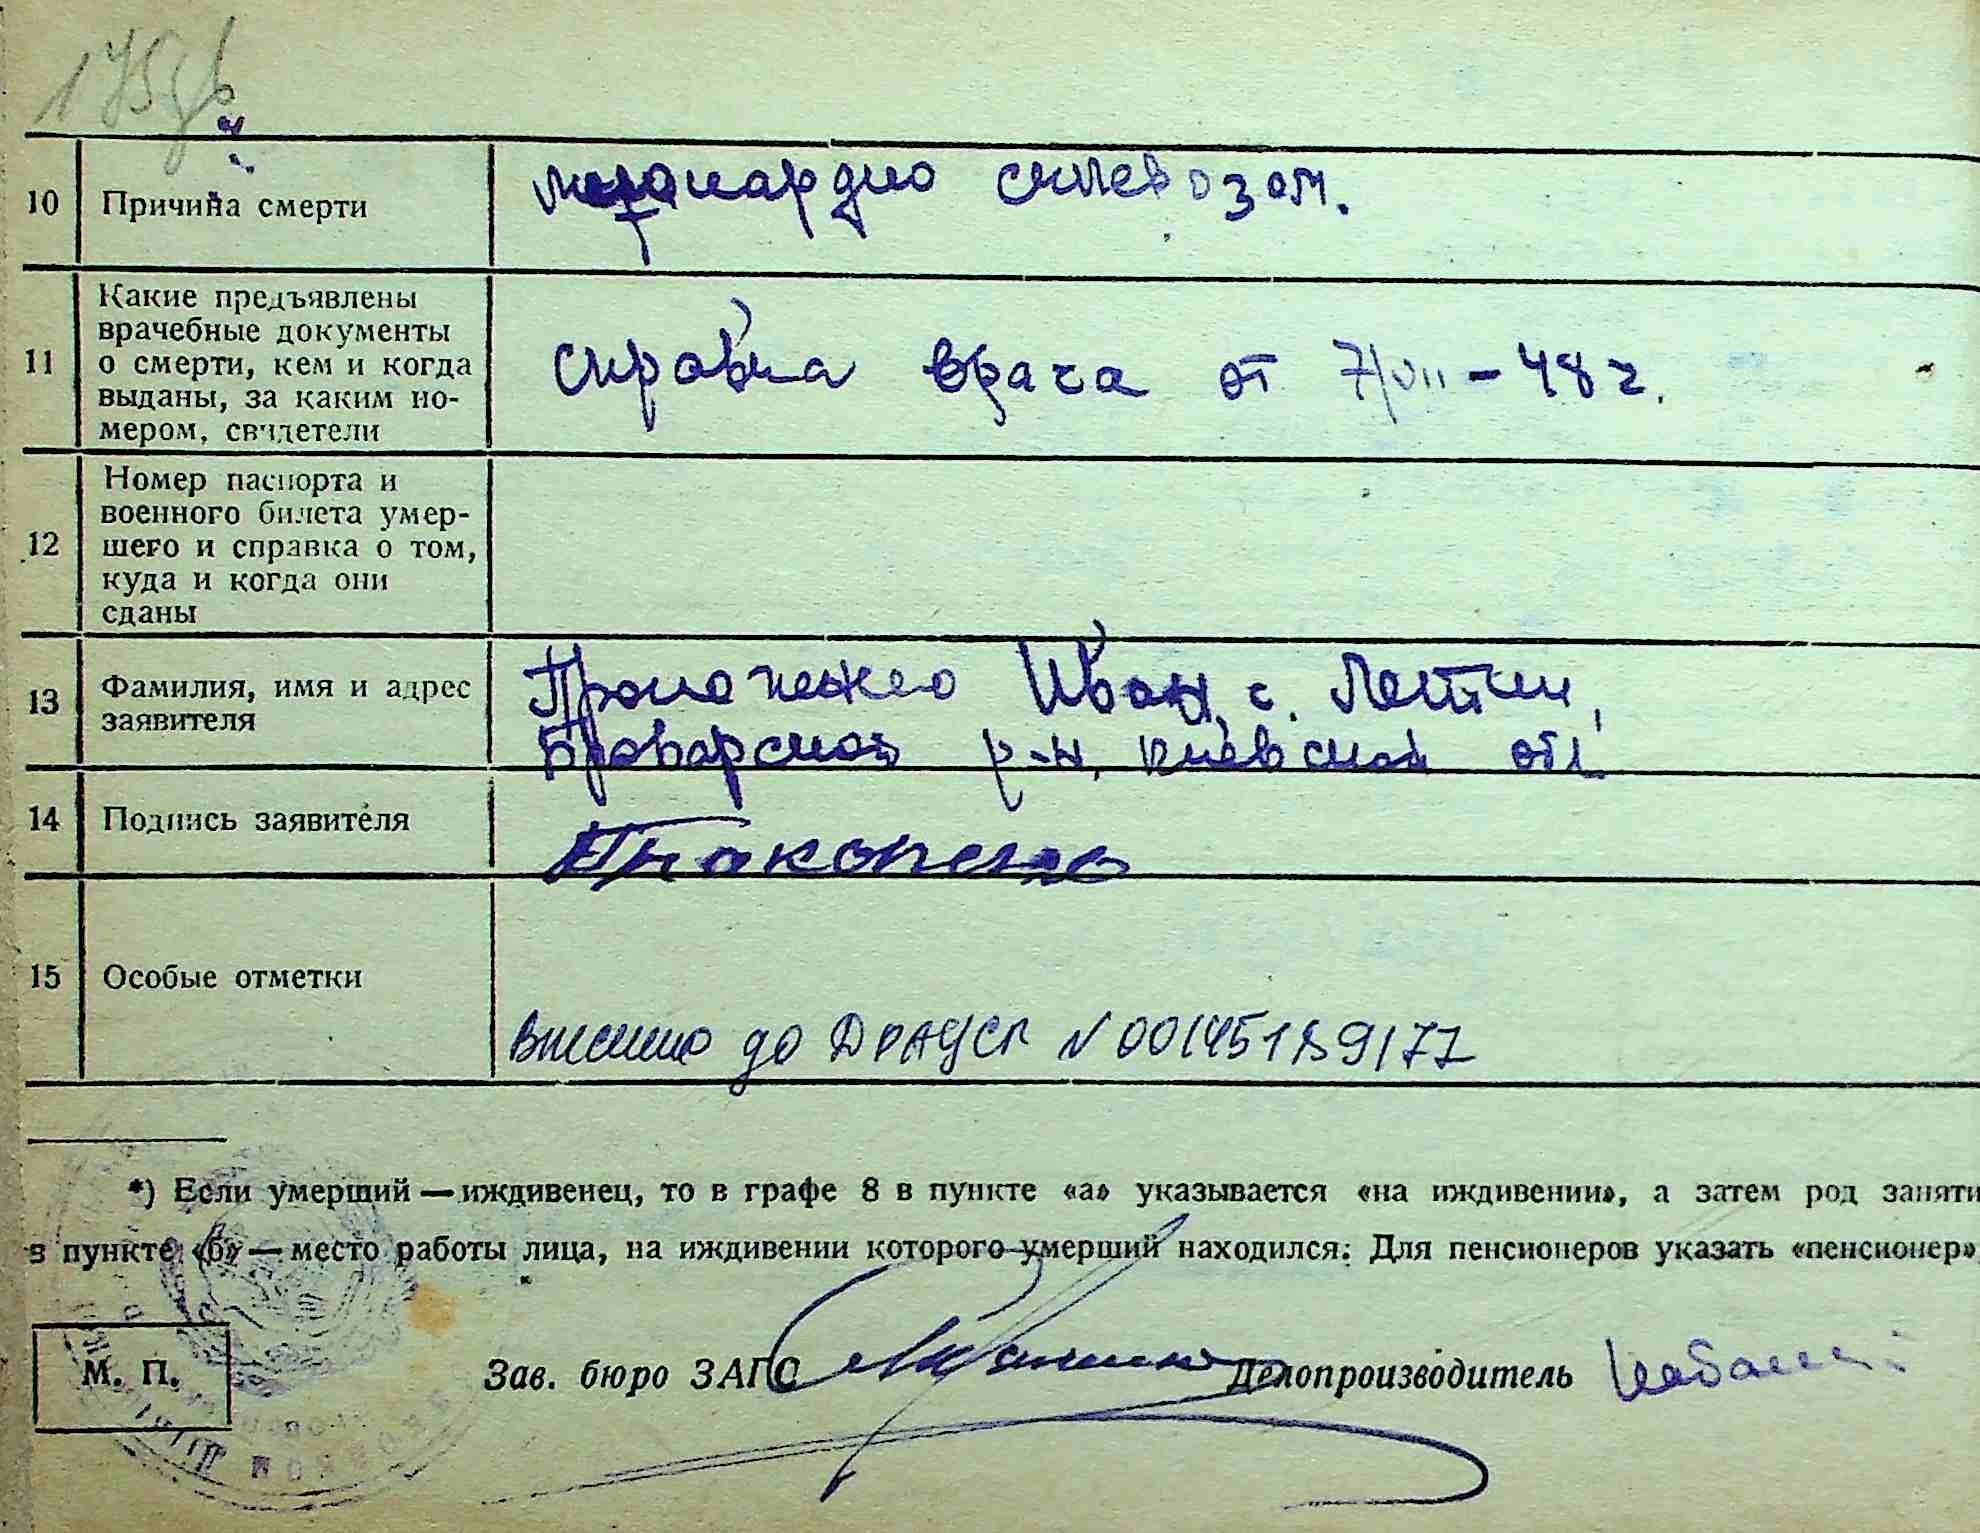 175
10 Причина смерти
11 Какие предъявлены
врачебные документы
о смерти, кем и когда
выданы, за каким но-
мером, свидетели
справка врача от 7/VII - 48 г.
12 Номер паспорта и
военного билета умер-
шего и справка о том,
куда и когда они
сданы
13 Фамилия, имя и адрес
заявителя
Иван, с.
Броварской р-н, киевской обл
14 Подпись заявителя
15 Особые отметки
Внесено до ДРАЦСГ N 00145189177
*) Если умерший — иждивенец, то в графе 8 в пункте «а» указывается «на иждивении», а затем род заняти
в пункте «б» — место работы лица, на иждивении которого умерший находился. Для пенсионеров указать «пенсионер»
М. П.
Зав. бюро ЗАГС Делопроизводитель